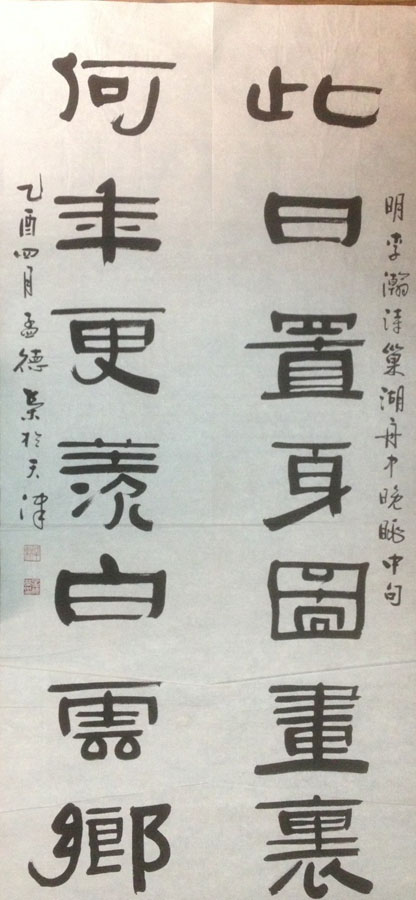 明李瀚诗巢湖舟中晚眺中句
此日置身圖畫裏
何年更羡白雲鄉
乙酉四月孟德荣於天津